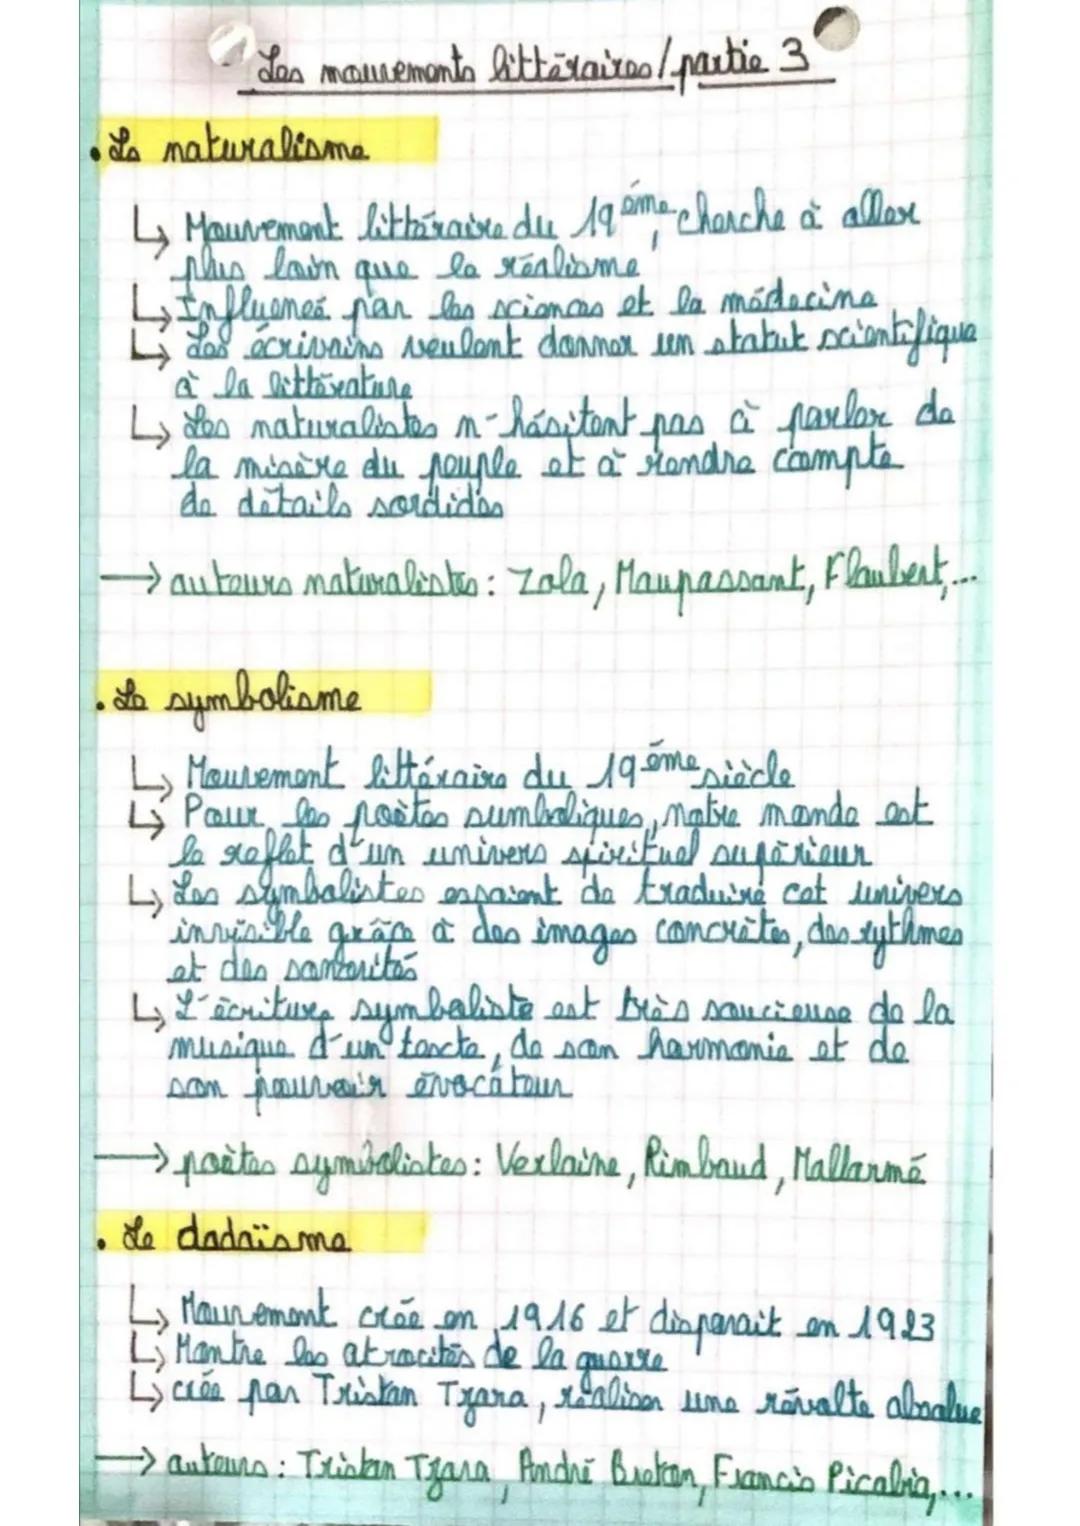 Les mouvements littéraires/partie 3
• Le naturalisme
↳ Mouvement littéraire du 19ème, cherche à aller
plus loin que le réalisme
↳ Influencé par les sciences et la médecine
↳ Les écrivains veulent donner un statut scientifique
à la littérature
↳ Les naturalistes n'hésitent pas à parler de
la misère du peuple et à rendre compte
de détails sordides
→ auteurs naturalistes : Zola, Maupassant, Flaubert,...
• Le symbolisme
↳ Mouvement littéraire du 19ème siècle
↳ Pour les poètes sumboliques, notre monde est
le reflet d'un univers spirituel supérieur
↳ Les symbolistes essaient de traduire cet univers
invisible grâce à des images concrètes, des rythmes
et des sonorités
↳ L'écriture symboliste est très soucieuse de la
musique d'un texte, de son harmonie et de
son pouvoir évocateur
→ poètes symbolistes : Verlaine, Rimbaud, Mallarmé
• Le dadaïsme
↳ Mouvement crée en 1916 et disparait en 1923
↳ Montre les atrocités de la guerre
↳ crée par Tristan Tzara, réaliser une révolte absolue
→ auteurs : Tristan Tzara, André Breton, Francis Picabia,...